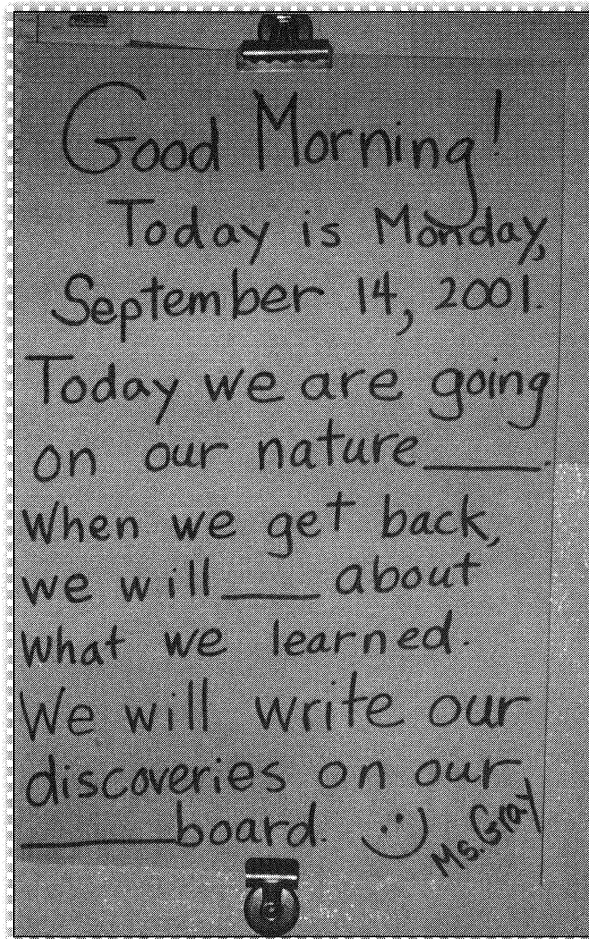 Good Morning!
Today is Monday,
September 14, 2001.
Today we are going
on our nature____.
When we get back,
we will____ about
what we learned.
We will write our
discoveries on our
______board. Ms. Gray